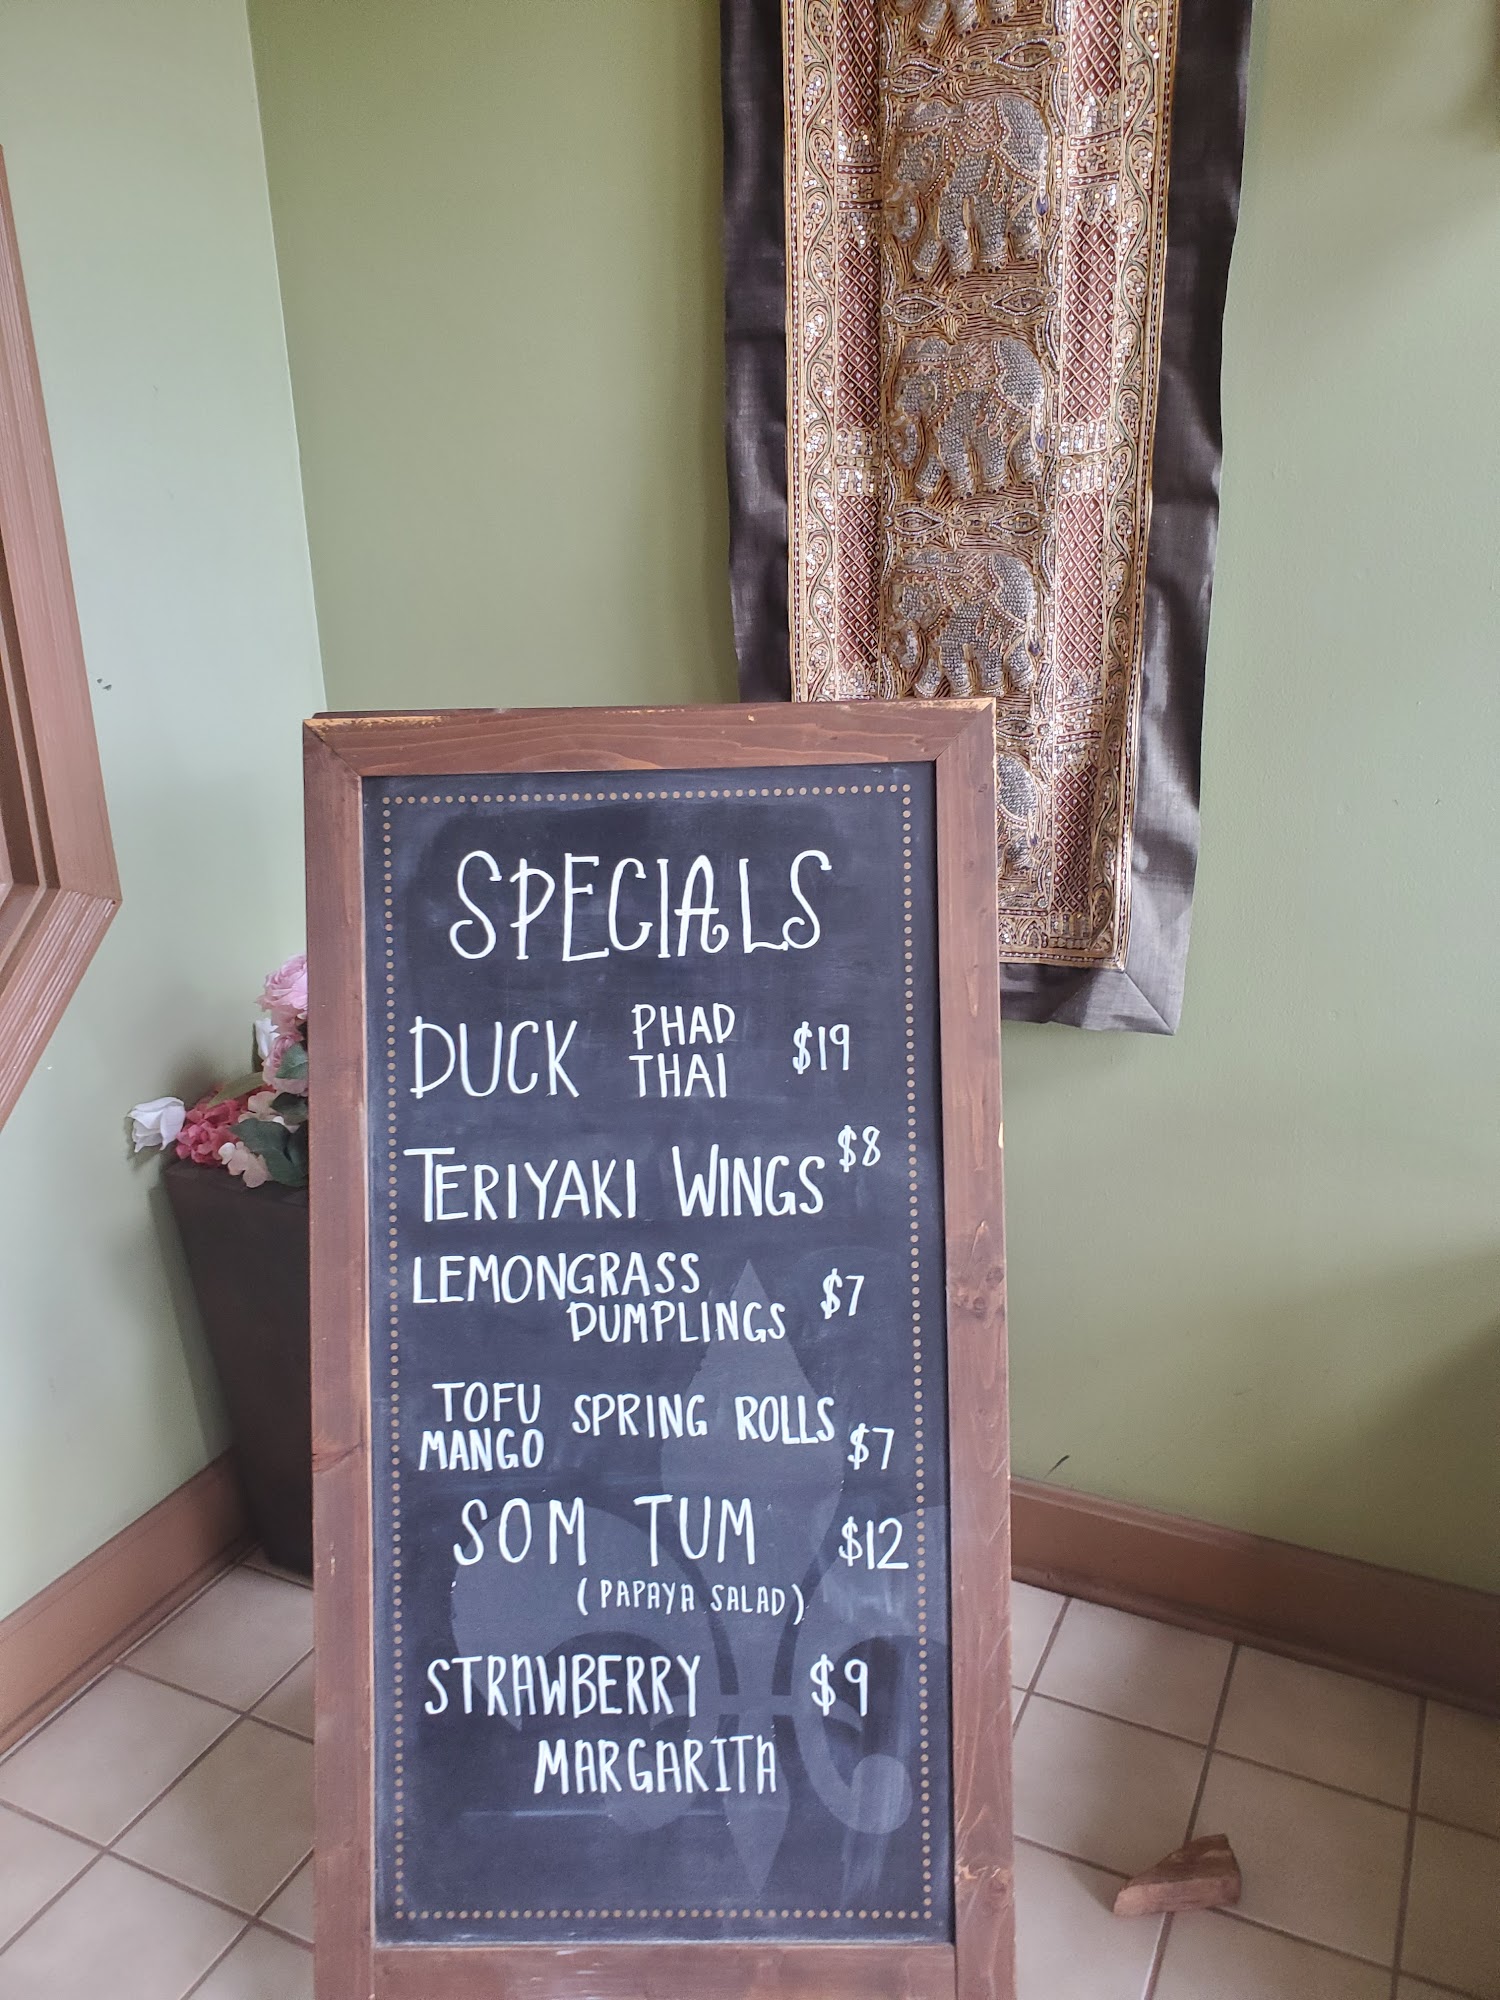 SPECIALS
DUCK PHAD THAI $19
TERIYAKI WINGS $8
LEMONGRASS
DUMPLINGS $7
TOFU MANGO SPRING ROLLS $7
SOM TUM $12
(PAPAYA SALAD)
STRAWBERRY $9
MARGARITA